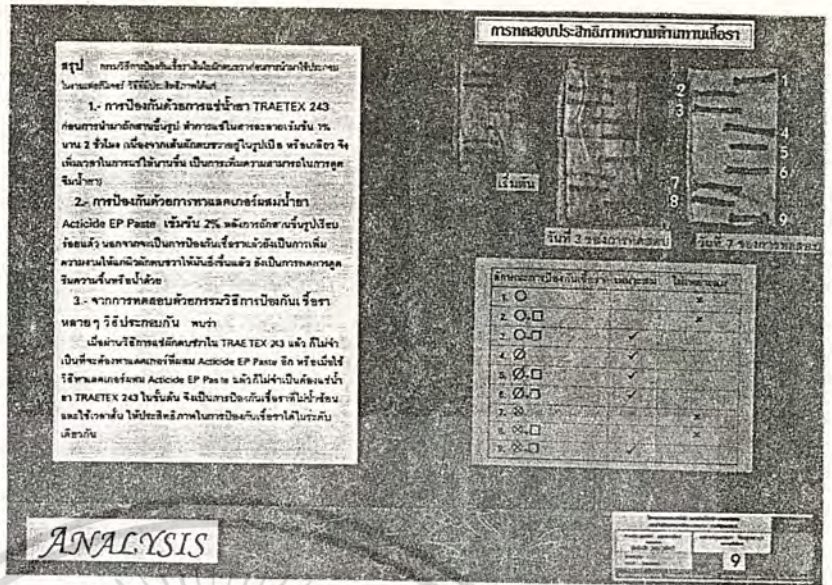 การทดสอบประสิทธิภาพความต้านทานเชื้อรา
สรุป กรรมวิธีการป้องกันเชื้อราเส้นใยผักตบชวาก่อนการนำมาใช้ประกอบ
ในงานเฟอร์นิเจอร์ วิธีที่มีประสิทธิภาพได้แก่
1.- การป้องกันด้วยการแช่น้ำยา TRAETEX 243
ก่อนการนำมาถักสานขึ้นรูป ทำการแช่ในสารละลายเข้มข้น 1%
นาน 2 ชั่วโมง (เนื่องจากเส้นผักตบชวาอยู่ในรูปเปีย หรือเกลียว จึง
เพิ่มเวลาในการแช่ให้นานขึ้น เป็นการเพิ่มความสามารถในการดูด
ซึมน้ำยา)
2.- การป้องกันด้วยการทาแลคเกอร์ผสมน้ำยา
Acticide EP Paste เข้มข้น 2% หลังการถักสานขึ้นรูปเรียบ
ร้อยแล้ว นอกจากจะเป็นการป้องกันเชื้อราแล้วยังเป็นการเพิ่ม
ความงามให้แก่ผิวผักตบชวาให้มันยิ่งขึ้นแล้ว ยังเป็นการลดการดูด
ซึมความชื้นหรือน้ำด้วย
3.- จากการทดสอบด้วยกรรมวิธีการป้องกันเชื้อรา
หลายๆ วิธีประกอบกัน พบว่า
เมื่อผ่านวิธีการแช่ผักตบชวาใน TRAETEX 243 แล้ว ก็ไม่จำ
เป็นที่จะต้องทาแลคเกอร์ที่ผสม Acticide EP Paste อีก หรือเมื่อใช้
วิธีทาแลคเกอร์ผสม Acticide EP Paste แล้วก็ไม่จำเป็นต้องแช่น้ำ
ยา TRAETEX 243 ในขั้นต้น จึงเป็นการป้องกันเชื้อราที่ไม่ซ้ำซ้อน
และใช้เวลาสั้น ให้ประสิทธิภาพในการป้องกันเชื้อราได้ในระดับ
เดียวกัน
1
2
3
4
5
6
7
8
9
เริ่มต้น
วันที่ 3 ของการทดสอบ
วันที่ 7 ของการทดสอบ
ลักษณะการป้องกันเชื้อรา เหมาะสม ไม่เหมาะสม
1. ×
2. ×
3. ✓
4. ✓
5. ✓
6. ✓
7. ×
8. ×
9. ✓
ANALYSIS
9